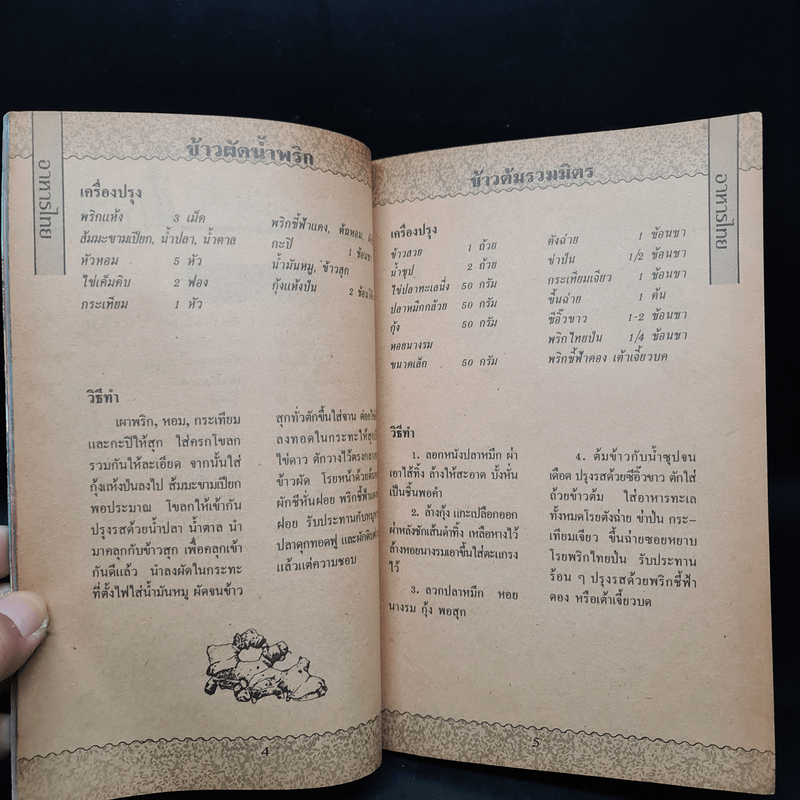 อาหารไทย
ข้าวผัดน้ำพริก
เครื่องปรุง
พริกแห้ง 3 เม็ด
ส้มมะขามเปียก, น้ำปลา, น้ำตาล
หัวหอม 5 หัว
ไข่เค็มดิบ 2 ฟอง
กระเทียม 1 หัว
พริกชี้ฟ้าแดง, ต้นหอม,
กะปิ 1 ช้อนชา
น้ำมันหมู, ข้าวสุก
กุ้งแห้งป่น 2 ช้อน
วิธีทำ
เผาพริก, หอม, กระเทียม
และกะปิให้สุก ใส่ครกโขลก
รวมกันให้ละเอียด จากนั้นใส่
กุ้งแห้งป่นลงไป ส้มมะขามเปียก
พอประมาณ โขลกให้เข้ากัน
ปรุงรสด้วยน้ำปลา น้ำตาล นำ
มาคลุกกับข้าวสุก เพื่อคลุกเข้า
กันดีแล้ว นำลงผัดในกระทะ
ที่ตั้งไฟใส่น้ำมันหมู ผัดจนข้าว
สุกทั่วตักขึ้นใส่จาน
ลงทอดในกระทะให้สุก
ไข่ดาว ตักวางไว้ตรง
ข้าวผัด โรยหน้าด้วย
ผักชีหั่นฝอย พริกชี้ฟ้าแดง
ฝอย รับประทานกับหมู
ปลาดุกทอดฟู และผักดิบ
แล้วแต่ความชอบ
4
ข้าวต้มรวมมิตร
อาหารไทย
เครื่องปรุง
ข้าวสวย 1 ถ้วย
น้ำซุป 2 ถ้วย
ไข่ปลาทะเลนึ่ง 50 กรัม
ปลาหมึกกล้วย 50 กรัม
กุ้ง 50 กรัม
หอยนางรม
ขนาดเล็ก 50 กรัม
ตังฉ่าย 1 ช้อนชา
ข่าป่น 1/2 ช้อนชา
กระเทียมเจียว 1 ช้อนชา
ขึ้นฉ่าย 1 ต้น
ซีอิ๊วขาว 1-2 ช้อนชา
พริกไทยป่น 1/4 ช้อนชา
พริกชี้ฟ้าดอง เต้าเจี้ยวบด
วิธีทำ
1. ลอกหนังปลาหมึก ผ่า
เอาไส้ทิ้ง ล้างให้สะอาด บั้งหั่น
เป็นชิ้นพอคำ
2. ล้างกุ้ง แกะเปลือกออก
ผ่าหลังชักเส้นดำทิ้ง เหลือหางไว้
ล้างหอยนางรมเอาขึ้นใส่ตะแกรง
ไว้
3. ลวกปลาหมึก หอย
นางรม กุ้ง พอสุก
4. ต้มข้าวกับน้ำซุปจน
เดือด ปรุงรสด้วยซีอิ๊วขาว ตักใส่
ถ้วยข้าวต้ม ใส่อาหารทะเล
ทั้งหมดโรยตังฉ่าย ข่าป่น กระ-
เทียมเจียว ขึ้นฉ่ายซอยหยาบ
โรยพริกไทยป่น รับประทาน
ร้อน ๆ ปรุงรสด้วยพริกชี้ฟ้า
ดอง หรือเต้าเจี้ยวบด
5